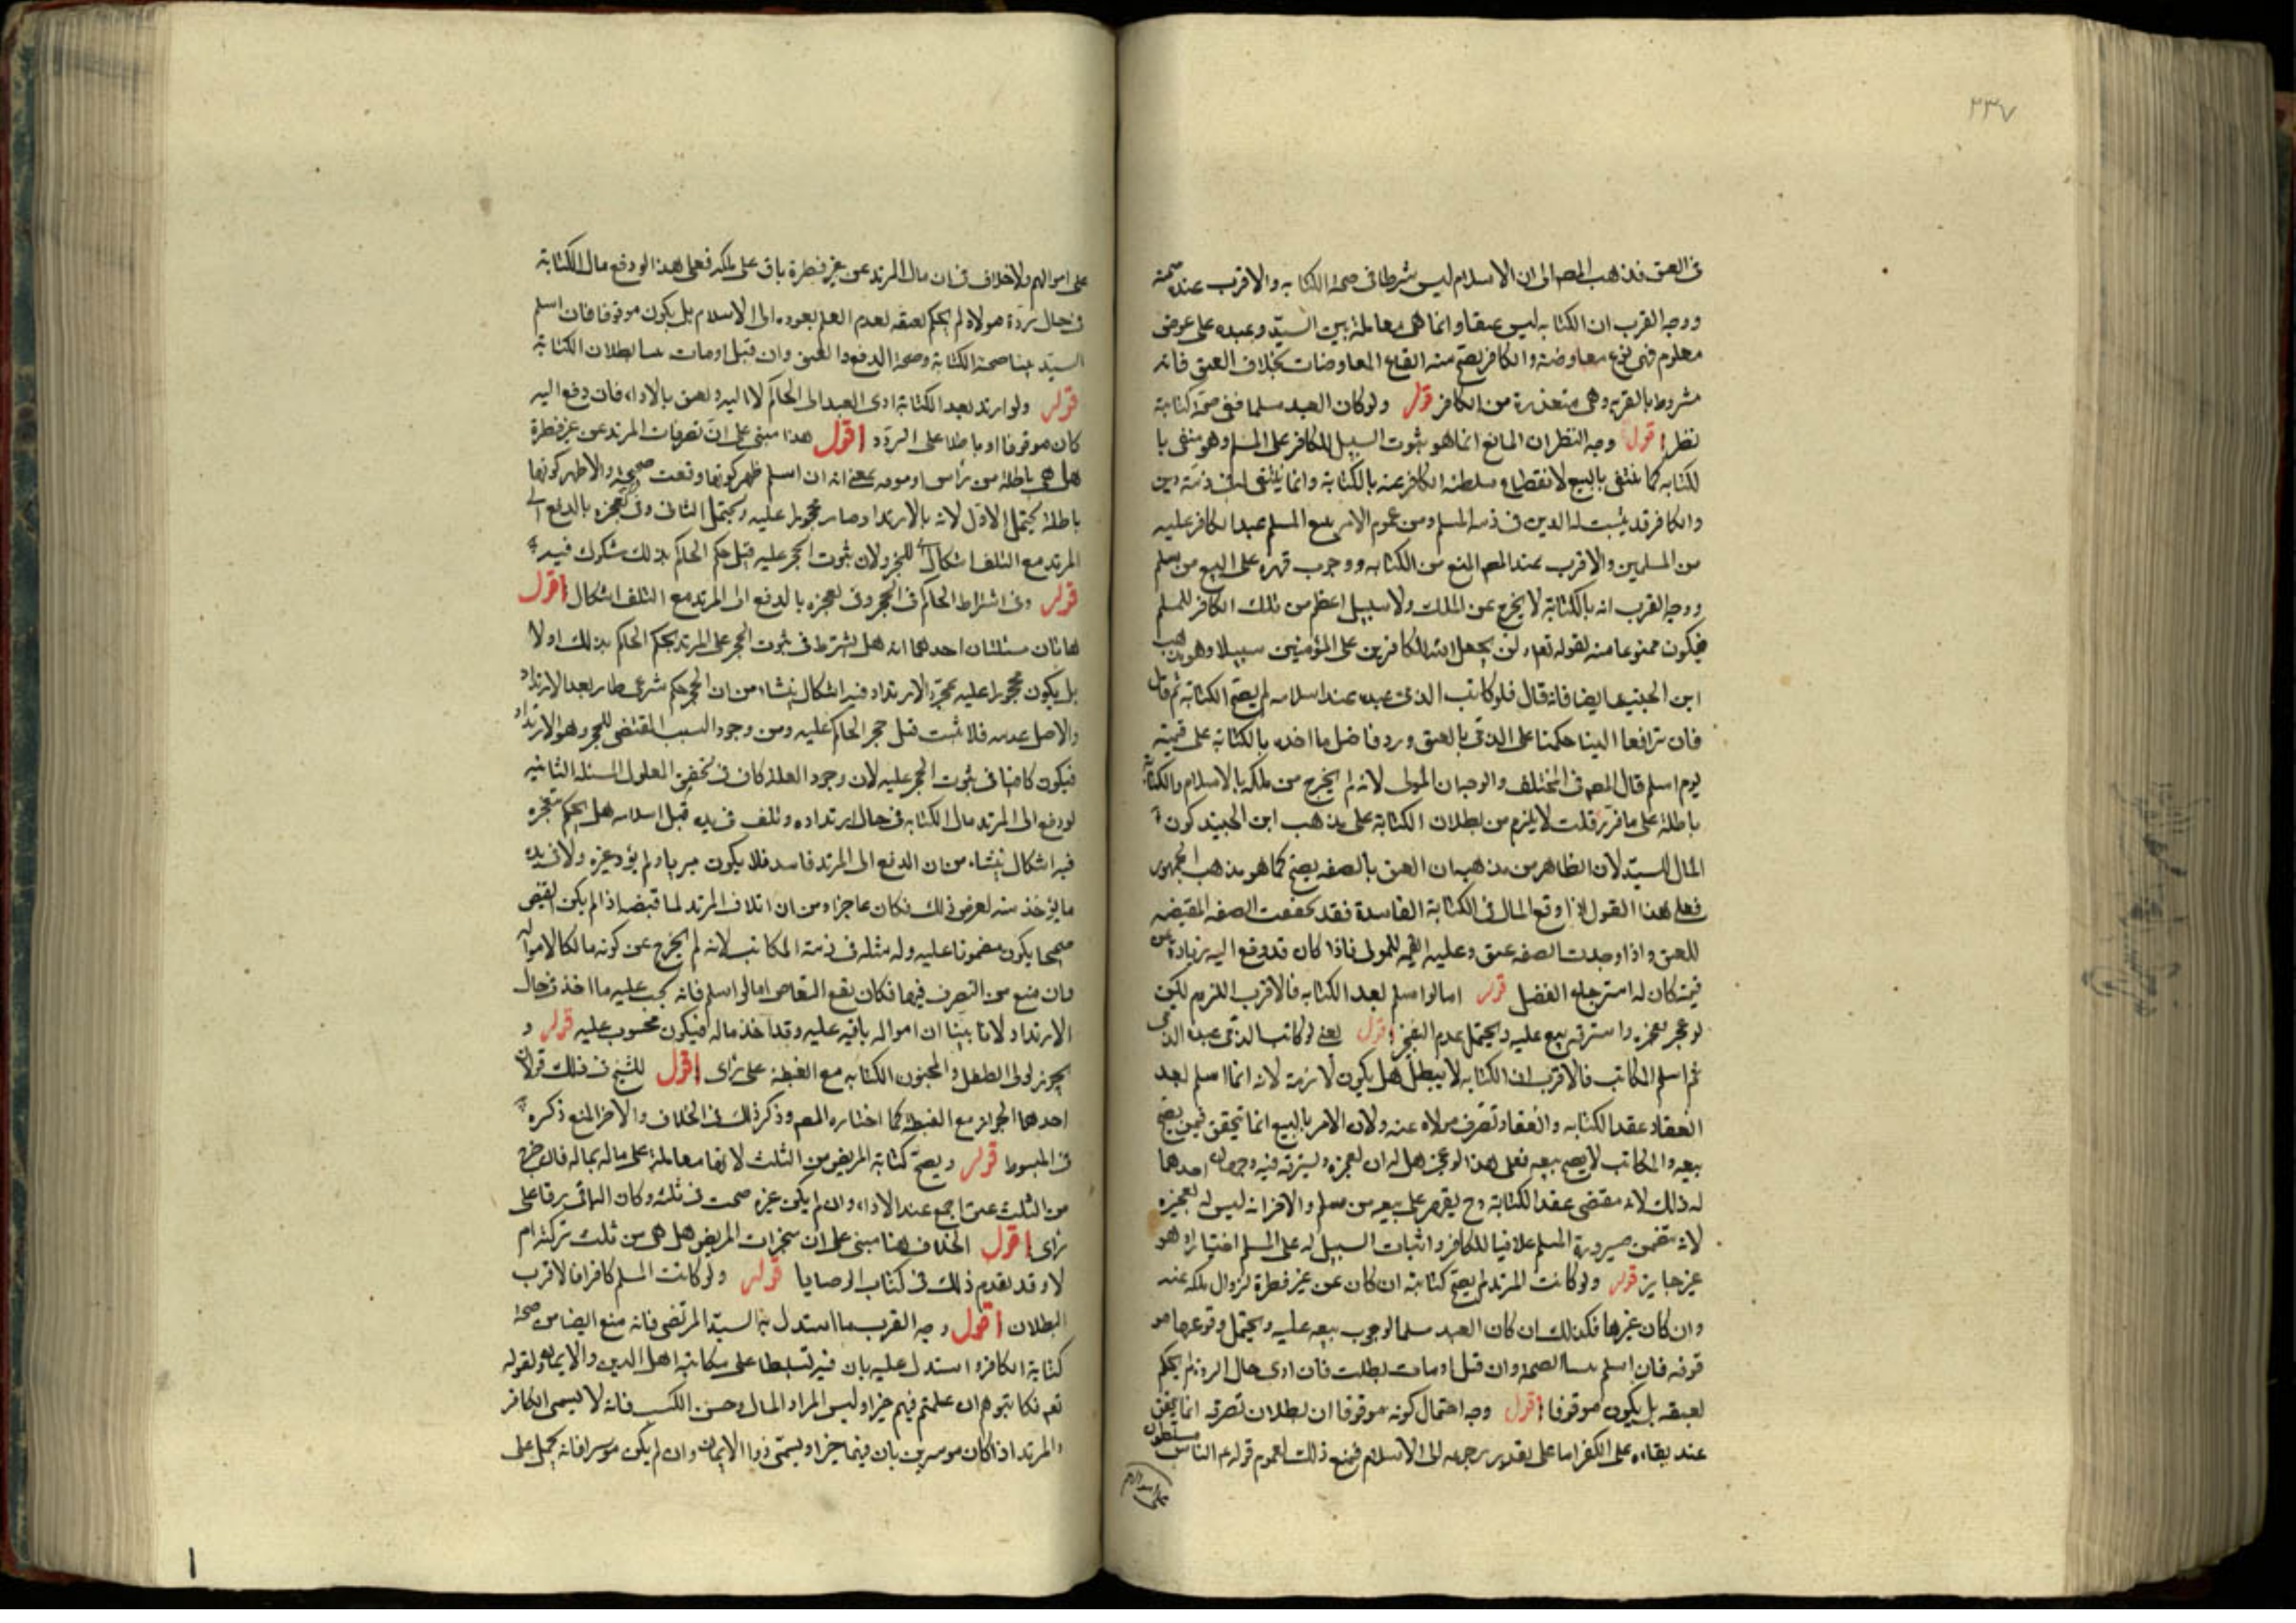 ٢٣٧
في العتق فذهب المصـ الى ان الاسلام ليس شرطا في صحة الكتابه والاقرب عنده صحته
ووجه القرب ان الكتابه ليس عتقا وانما هى معاملة بين السيّد وعبده على عوض
معلوم فهى نوع معاوضة والكافر يصح منه انواع المعاوضات بخلاف العتق فانه
مشروط بالقربه وهى متعذرة من الكافر قوله ولو كان العبد مسلما ففى صحة كتابته
نظر اقول وجه النظر ان المانع انما هو ثبوت السبيل للكافر على المسلم وهو منفى با
لكتابه كما ينتفى بالبيع لانقطاع سلطنة الكافر عنه بالكتابة وانما يبقى له فى ذمته دين
والكافر قد يثبت له الدين فى ذمة المسلم ومن عموم الامر ببيع المسلم عبد الكافر عليه
من المسلمين والاقرب عند المصـ المنع من الكتابه ووجوب قهره على البيع من مسلم
ووجه القرب انه بالكتابة لا يخرج عن الملك ولا سبيل اعظم من ملك الكافر للمسلم
فيكون ممنوعا منه لقوله تعـ ولن يجعل الله للكافرين على المؤمنين سبيلا وهو مذهب
ابن الجنيد ايضا فانه قال فلو كاتب الذمى عبده عند اسلامه لم يصح الكتابة ثم قال
فان ترافعا الينا حكمنا على الذمى بالعتق ورد فاضل ما اخذه بالكتابة على قيمته
يوم اسلم قال المصـ فى المختلف والوجه ان المولى لانه لم يخرج من ملكه بالاسلام والكتابة
باطلة على ما قرر قلت لا يلزم من بطلان الكتابة على مذهب ابن الجنيد كون
المال للسيّد لان الظاهر من مذهبه ان العتق بالصفه يصح كما هو مذهب الجمهور
فعلى هذا القول اذا وقع المال فى الكتابة الفاسدة فقد تحققت الصفه المقتضيه
للعتق واذا وجدت الصفه عتق وعليه القيمه للمولى فاذا كان قد دفع اليه زيادة عن
قيمته كان له استرجاع الفضل قوله اما لو اسلم بعد الكتابه فالاقرب اللزوم لكن
لو عجز فعجزه واسترقه بيع عليه ويحتمل عدم التعجيز اقول يعنى لو كاتب الذمى عبده الذمى
ثم اسلم المكاتب فالاقرب ان الكتابه لا يبطل بل يكون لازمة لانه انما اسلم بعد
انعقاد عقد الكتابه وانعقاد تصرف مولاه عنه ولان الامر بالبيع انما يتحقق فيمن يصح
بيعه والمكاتب لا يصح بيعه فعلى هذا لو عجز هل له ان يعجزه ويسترقه فيه وجهان احدهما
له ذلك لانه مقتضى عقد الكتابة وح يقهر على بيعه من مسلم والاخر انه ليس له تعجيزه
لانه يتضمن صيرورة المسلم ملكا للكافر واثبات السبيل له على المسلم اختيارا وهو
غير جايز قوله ولو كاتب المرتد لم يصح كتابته ان كان عن غير فطرة لزوال ملكه عنه
وان كان غيرها فكذلك ان كان العبد مسلما لوجوب بيعه عليه ويحتمل وقوعها مو
قوفه فان اسلم تبينا الصحة وان قتل او مات بطلت فان ادى حال الردة لم يحكم
بعتقه بل يكون موقوفا اقول وجه احتمال كونه موقوفا ان بطلان تصرفه انما يتحقق
عند بقاءه على الكفر اما على تقدير رجوعه الى الاسلام فمنع ذلك لعموم قوله ع الناس مسلطون
على اموالهم
على اموالهم ولا خلاف فى ان مال المرتد عن غير فطرة باق على ملكه فعلى هذا لو دفع مال الكتابة
فى حال ردة مولاه لم يحكم بعتقه لعدم العلم بعوده الى الاسلام بل يكون موقوفا فان اسلم
السيّد تبينا صحة الكتابة وصحة الدفع والعتق وان قتل او مات تبينا بطلان الكتابة
قوله ولو ارتد بعد الكتابة ادى العبد الى الحاكم لا اليه ويعتق بالاداء فان دفع اليه
كان موقوفا او باطلا على التردد اقول هذا مبنى على ان تصرفات المرتد عن غير فطرة
هل هى باطلة من راس او موقوفه بمعنى انه ان اسلم ظهر كونها وقعت صحيحة والاظهر كونها
باطلة يحتمل الاول لانه بالارتداد صار محجورا عليه ويحتمل الثانى وفى تعجيزه بالدفع الى
المرتد مع التلف اشكال للحجر ولان ثبوت الحجر عليه قبل حكم الحاكم بذلك مشكوك فيه
قوله وفى اشتراط الحاكم فى الحجر وفى تعجيزه بالدفع الى المرتد مع التلف اشكال اقول
هاتان مسئلتان احدهما انه هل يشترط فى ثبوت الحجر على المرتد حكم الحاكم بذلك او لا
بل يكون محجورا عليه بمجرد الارتداد فيه اشكال ينشاء من ان الحجر حكم شرعى طار بعد الارتداد
والاصل عدمه فلا يثبت قبل حجر الحاكم عليه ومن وجود السبب المقتضى للحجر وهو الارتداد
فيكون كافيا فى ثبوت الحجر عليه لان وجود العلة كاف فى تحقق المعلول المسئلة الثانيه
لو دفع الى المرتد مال الكتابه فى حال ارتداده وتلف فى يده قبل اسلامه هل يحكم بعجزه
فيه اشكال ينشاء من ان الدفع الى المرتد فاسد فلا يكون مبريا ولم يؤد غيره ولا فى يده
ما يؤخذ منه لعوض ذلك فكان عاجزا ومن ان اتلاف المرتد لما قبضه اذا لم يكن القبض
صحيحا يكون مضمونا عليه وله مثله فى ذمة المكاتب لانه لم يخرج عن كونه مالكا لامواله
وان منع من التصرف فيها فكان يقع التقاص اما لو اسلم فانه يحب عليه ما اخذ فى حال
الارتداد لانا بينا ان امواله باقيه عليه وقد اخذ ماله فيكون محسوب عليه قوله و
يجوز لولى الطفل والمجنون الكتابه مع الغبطة على راى اقول للشيخ فى ذلك قولان
احدهما الجواز مع الغبطه كما اختاره المصـ وذكر ذلك فى الخلاف والاخر المنع ذكره
فى المبسوط قوله ويصح كتابة المريض من الثلث لانها معاملة على ماله بماله فان خرج
من الثلث عتق اجمع عند الاداء وان لم يكن غيره صحت فى ثلثه وكان الباقى رقا على
راى اقول الخلاف هنا مبنى على ان منجزات المريض هل هى من ثلث تركته ام
لا وقد تقدم ذلك فى كتاب الوصايا قوله ولو كاتب المسلم كافرا فالاقرب
البطلان اقول وجه القرب ما استدل به السيّد المرتضى فانه منع ايضا من صحة
كتابة الكافر واستدل عليه بان فيه تسلطا على مكاتبة اهل الدين والايمان ولقوله
تعـ فكاتبوهم ان علمتم فيهم خيرا وليس المراد المال وحسن التكسب فانه لا يسمى الكافر
والمرتد اذا كان موسرين بان فيهما خيرا ويسمى ذو الايمان وان لم يكن موسرا فانه يحمل على